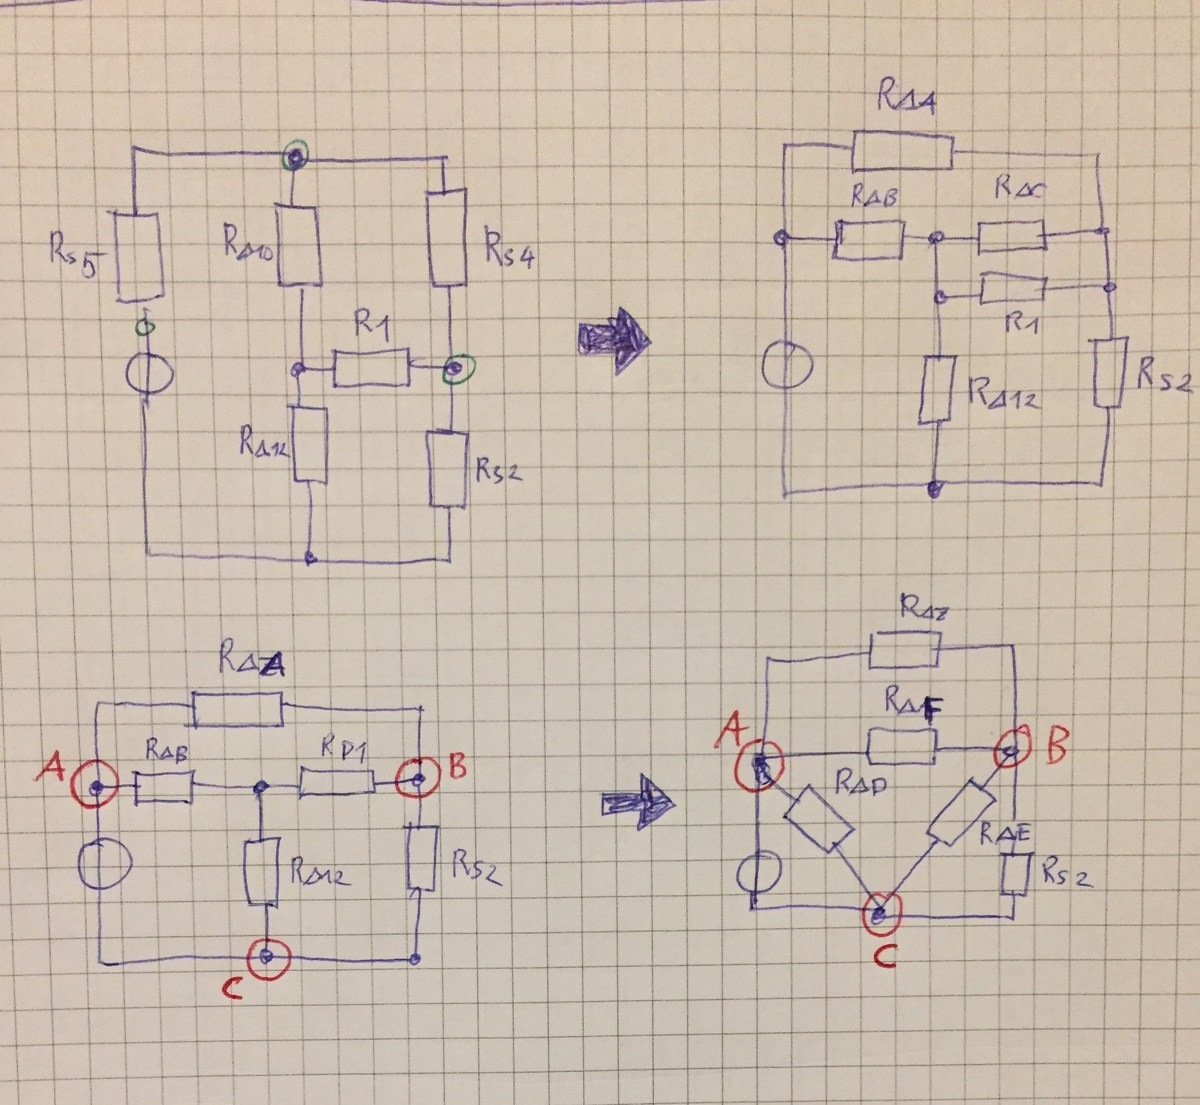 RΔA
RΔB
RΔC
RS5
RΔ10
RS4
R1
R1
RΔ12
RS2
RΔ12
RS2
RΔZ
RΔA
RΔF
A
B
RΔB
RP1
A
B
RΔD
RΔE
RΔ12
RS2
RS2
C
C